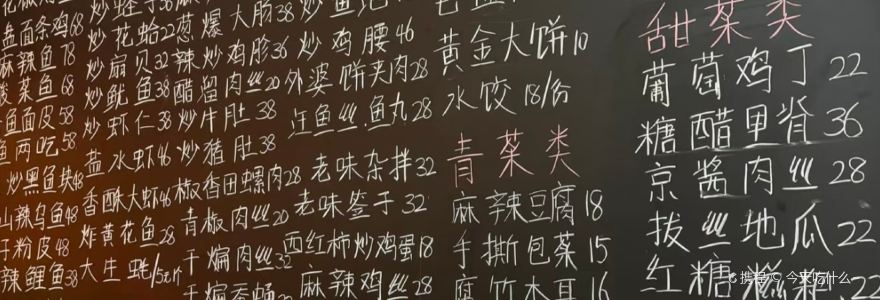 盘面条鸡68
麻辣鱼78
酸菜鱼68
鱼面皮58
鱼两吃58
炒黑鱼块48
山辣乌鱼48
粉皮48
辣鲤鱼38
炒花蛤22
炒扇贝32
炒鱿鱼38
炒虾仁38
盐水虾46
香酥大虾46
炸黄花鱼28
大生蚝/5元
葱爆大肠38
辣炒鸡胗36
醋留肉丝20
炒牛肚38
炒猪肚38
椒香田螺肉28
青椒肉丝20
干煸肉丝32
炒鸡腰46
外婆饼夹肉28
鱼丝鱼丸28
老味杂拌32
老味签子32
西红柿炒鸡蛋18
麻辣鸡丝28
黄金大饼10
水饺18/份
青菜类
麻辣豆腐18
手撕包菜15
腐竹木耳16
甜菜类
葡萄鸡丁22
糖醋里脊36
京酱肉丝28
拔丝地瓜22
红糖糍粑22
携程 今来吃什么